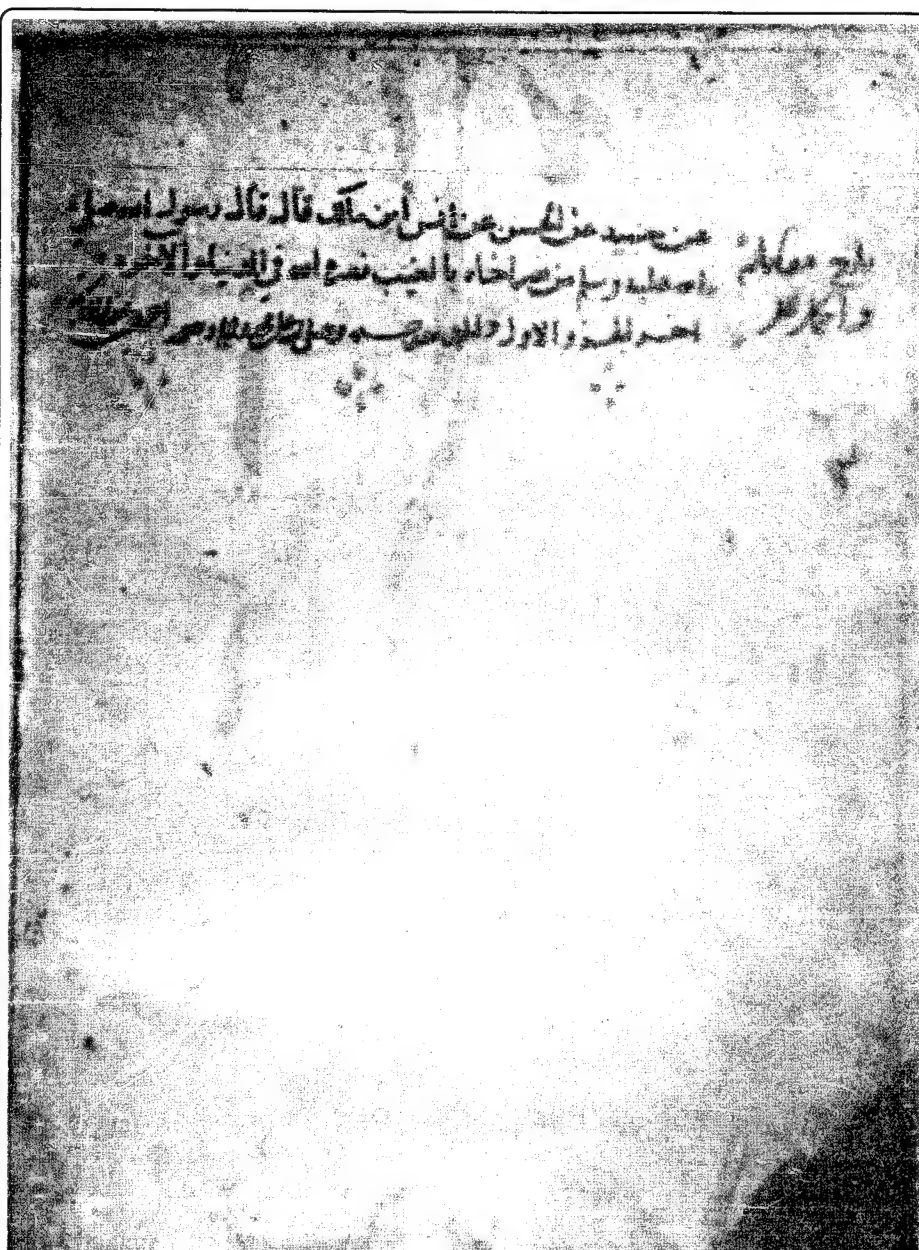 عن حميد عن الحسن عن أنس ابن مالك قال قال رسول الله صلى
الله عليه وسلم من نصر اخاه بالغيب نصره الله في الدنيا والاخرة
اخر الجزء الاول والحمد لله وحده وصلى على محمد
بلغ مقابلة